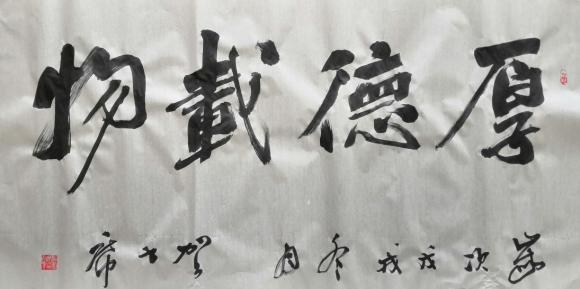 厚德載物
歲次戊戌冬月